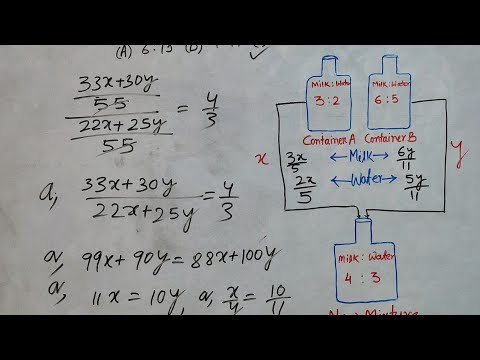 (A) 6:13 (B)
33x+30y
55
22x+25y
55
= 4/3
a, 33x+30y / 22x+25y = 4/3
a, 99x+90y = 88x+100y
a, 11x = 10y, a, x/y = 10/11
Milk:Water
3:2
Milk:Water
6:5
Container A Container B
x
y
3x/5 ← Milk → 6y/11
2x/5 ← Water → 5y/11
Milk:Water
4 : 3
New Mixture